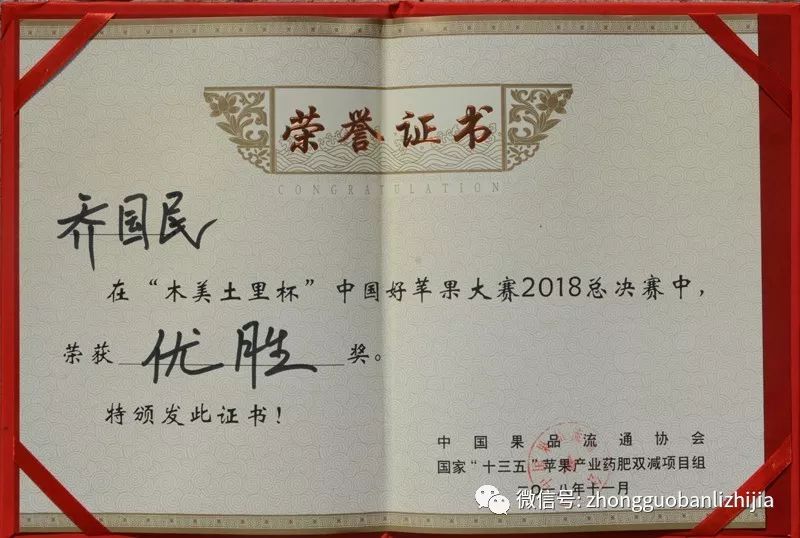 荣誉证书
CONGRATULATION
乔国民
在“木美土里杯”中国好苹果大赛2018总决赛中，
荣获 优胜 奖。
特颁发此证书！
中国果品流通协会
国家“十三五”苹果产业药肥双减项目组
二〇一八年十一月
微信号: zhongguobanlizhijia